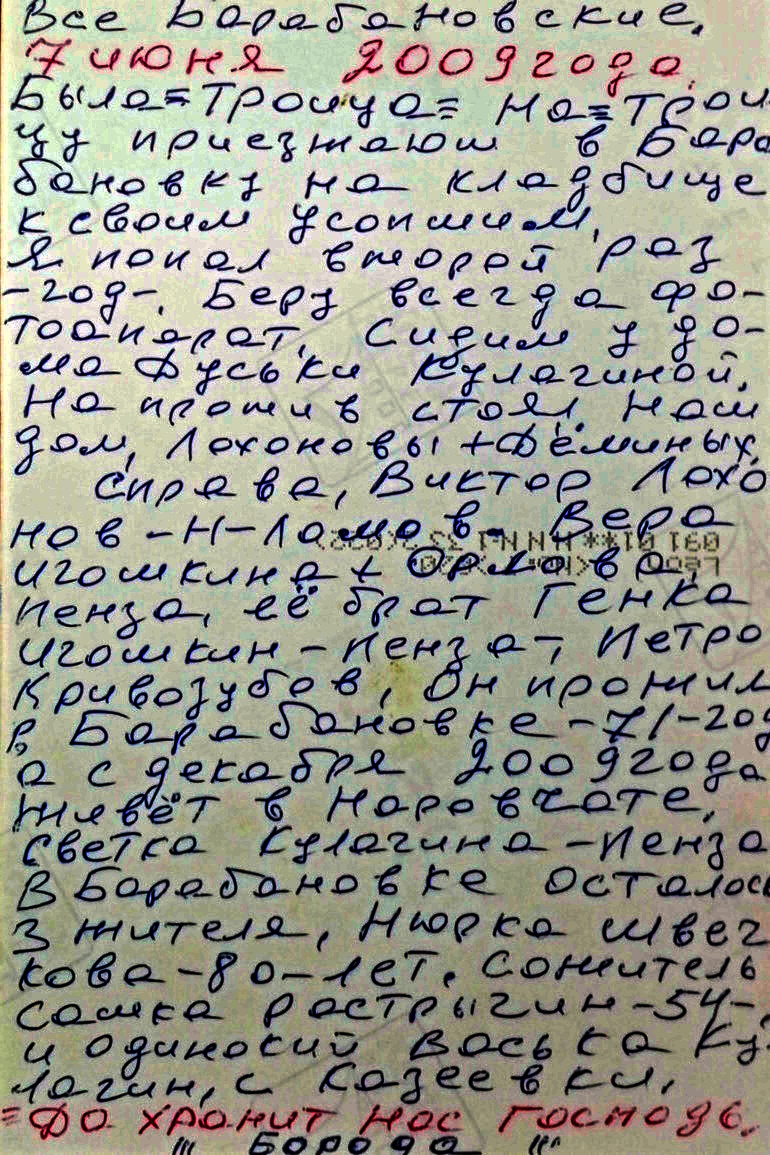 Все Барабановские.
7 июня 2009 года.
Была=Троица= На=Трои-
цу приезжают в Бара
бановку на кладбище
к своим усопшим.
Я попал второй раз
-год-. Беру всегда фо-
тоапарат. Сидим у до-
ма Фуськи Кулагиной.
На против стоял наш
дом, Лохоновы+Дёминых.
Справа, Виктор Лохо
нов-Н-Ломов. Вера
Игошкина+Орлова,
Пенза, её брат Генка
Игошкин-Пенза-, Петро
Кривозубов, Он прожил
в Барабановке-71-год
а с декабря 2009 года
живёт в Наровчате.
Светка Кулагина-Пенза
В Барабановке осталось
3 жителя, Нюрка Швеч
кова-80-лет. Сожитель
Сашка Растрыгин-54-,
и одинокий Васька Ку-
лагин, с Казеевки.
=Да хранит нас Господь.
"Борода"